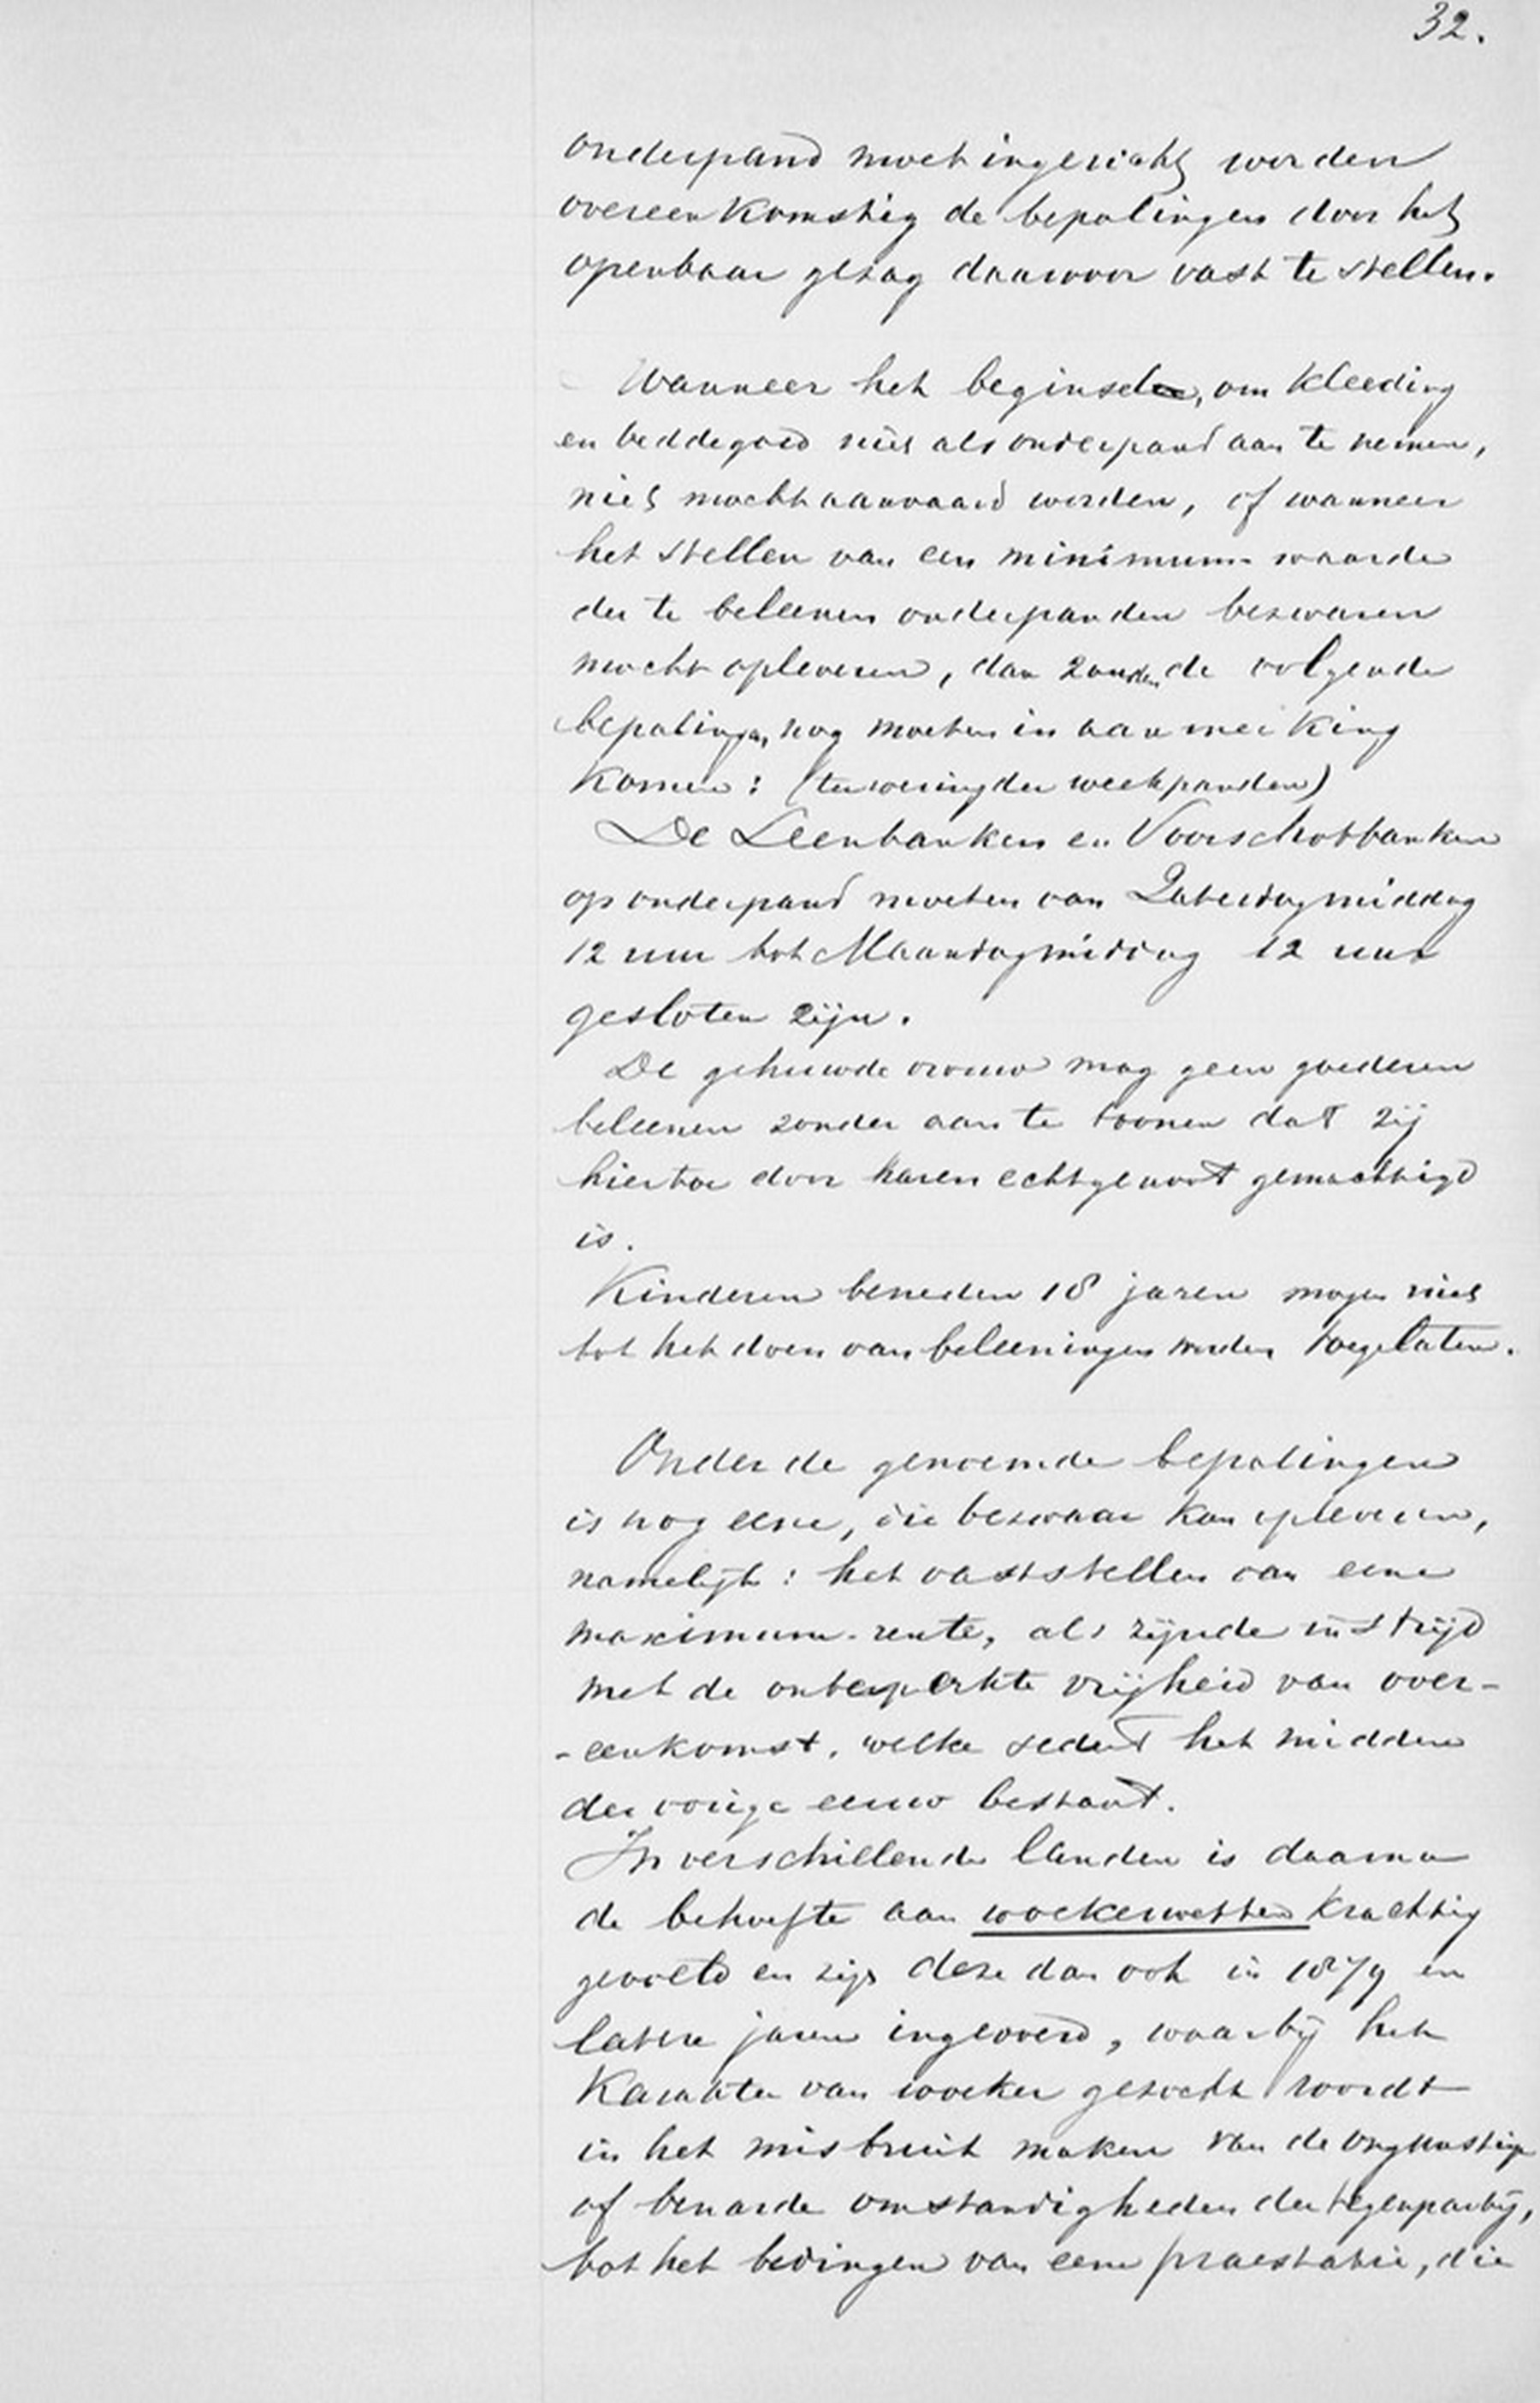 32.
onderpand moet ingericht worden
overeenkomstig de bepalingen door het
openbaar gezag daarvoor vast te stellen.
Wanneer het beginsel, om kleeding
en beddegoed niet als onderpand aan te nemen,
niet mocht aanvaard worden, of wanneer
het stellen van een minimum-waarde
der te beleenen onderpanden bezwaren
mocht opleveren, dan zouden de volgende
bepalingen nog moeten in aanmerking
komen: (ter wering der weekpanden)
De Leenbanken en Voorschotbanken
op onderpand moeten van Zaterdagmiddag
12 uur tot Maandagmiddag 12 uur
gesloten zijn.
De gehuwde vrouw mag geen goederen
beleenen zonder aan te toonen dat zij
hiertoe door haren echtgenoot gemachtigd
is.
Kinderen beneden 18 jaren mogen niet
tot het doen van beleeningen worden toegelaten.
Onder de genoemde bepalingen
is nog eene, die bezwaar kan opleveren,
namelijk: het vaststellen van eene
maximum-rente, als zijnde in strijd
met de onbeperkte vrijheid van over-
-eenkomst, welke sedert het midden
der vorige eeuw bestaat.
In verschillende landen is daarna
de behoefte aan woekerwetten krachtig
gevoeld en zijn deze dan ook in 1879 en
latere jaren ingevoerd, waarbij het
karakter van woeker gezocht wordt
in het misbruik maken van de ongunstige
of benarde omstandigheden der tegenpartij,
tot het bedingen van eene praestatie, die